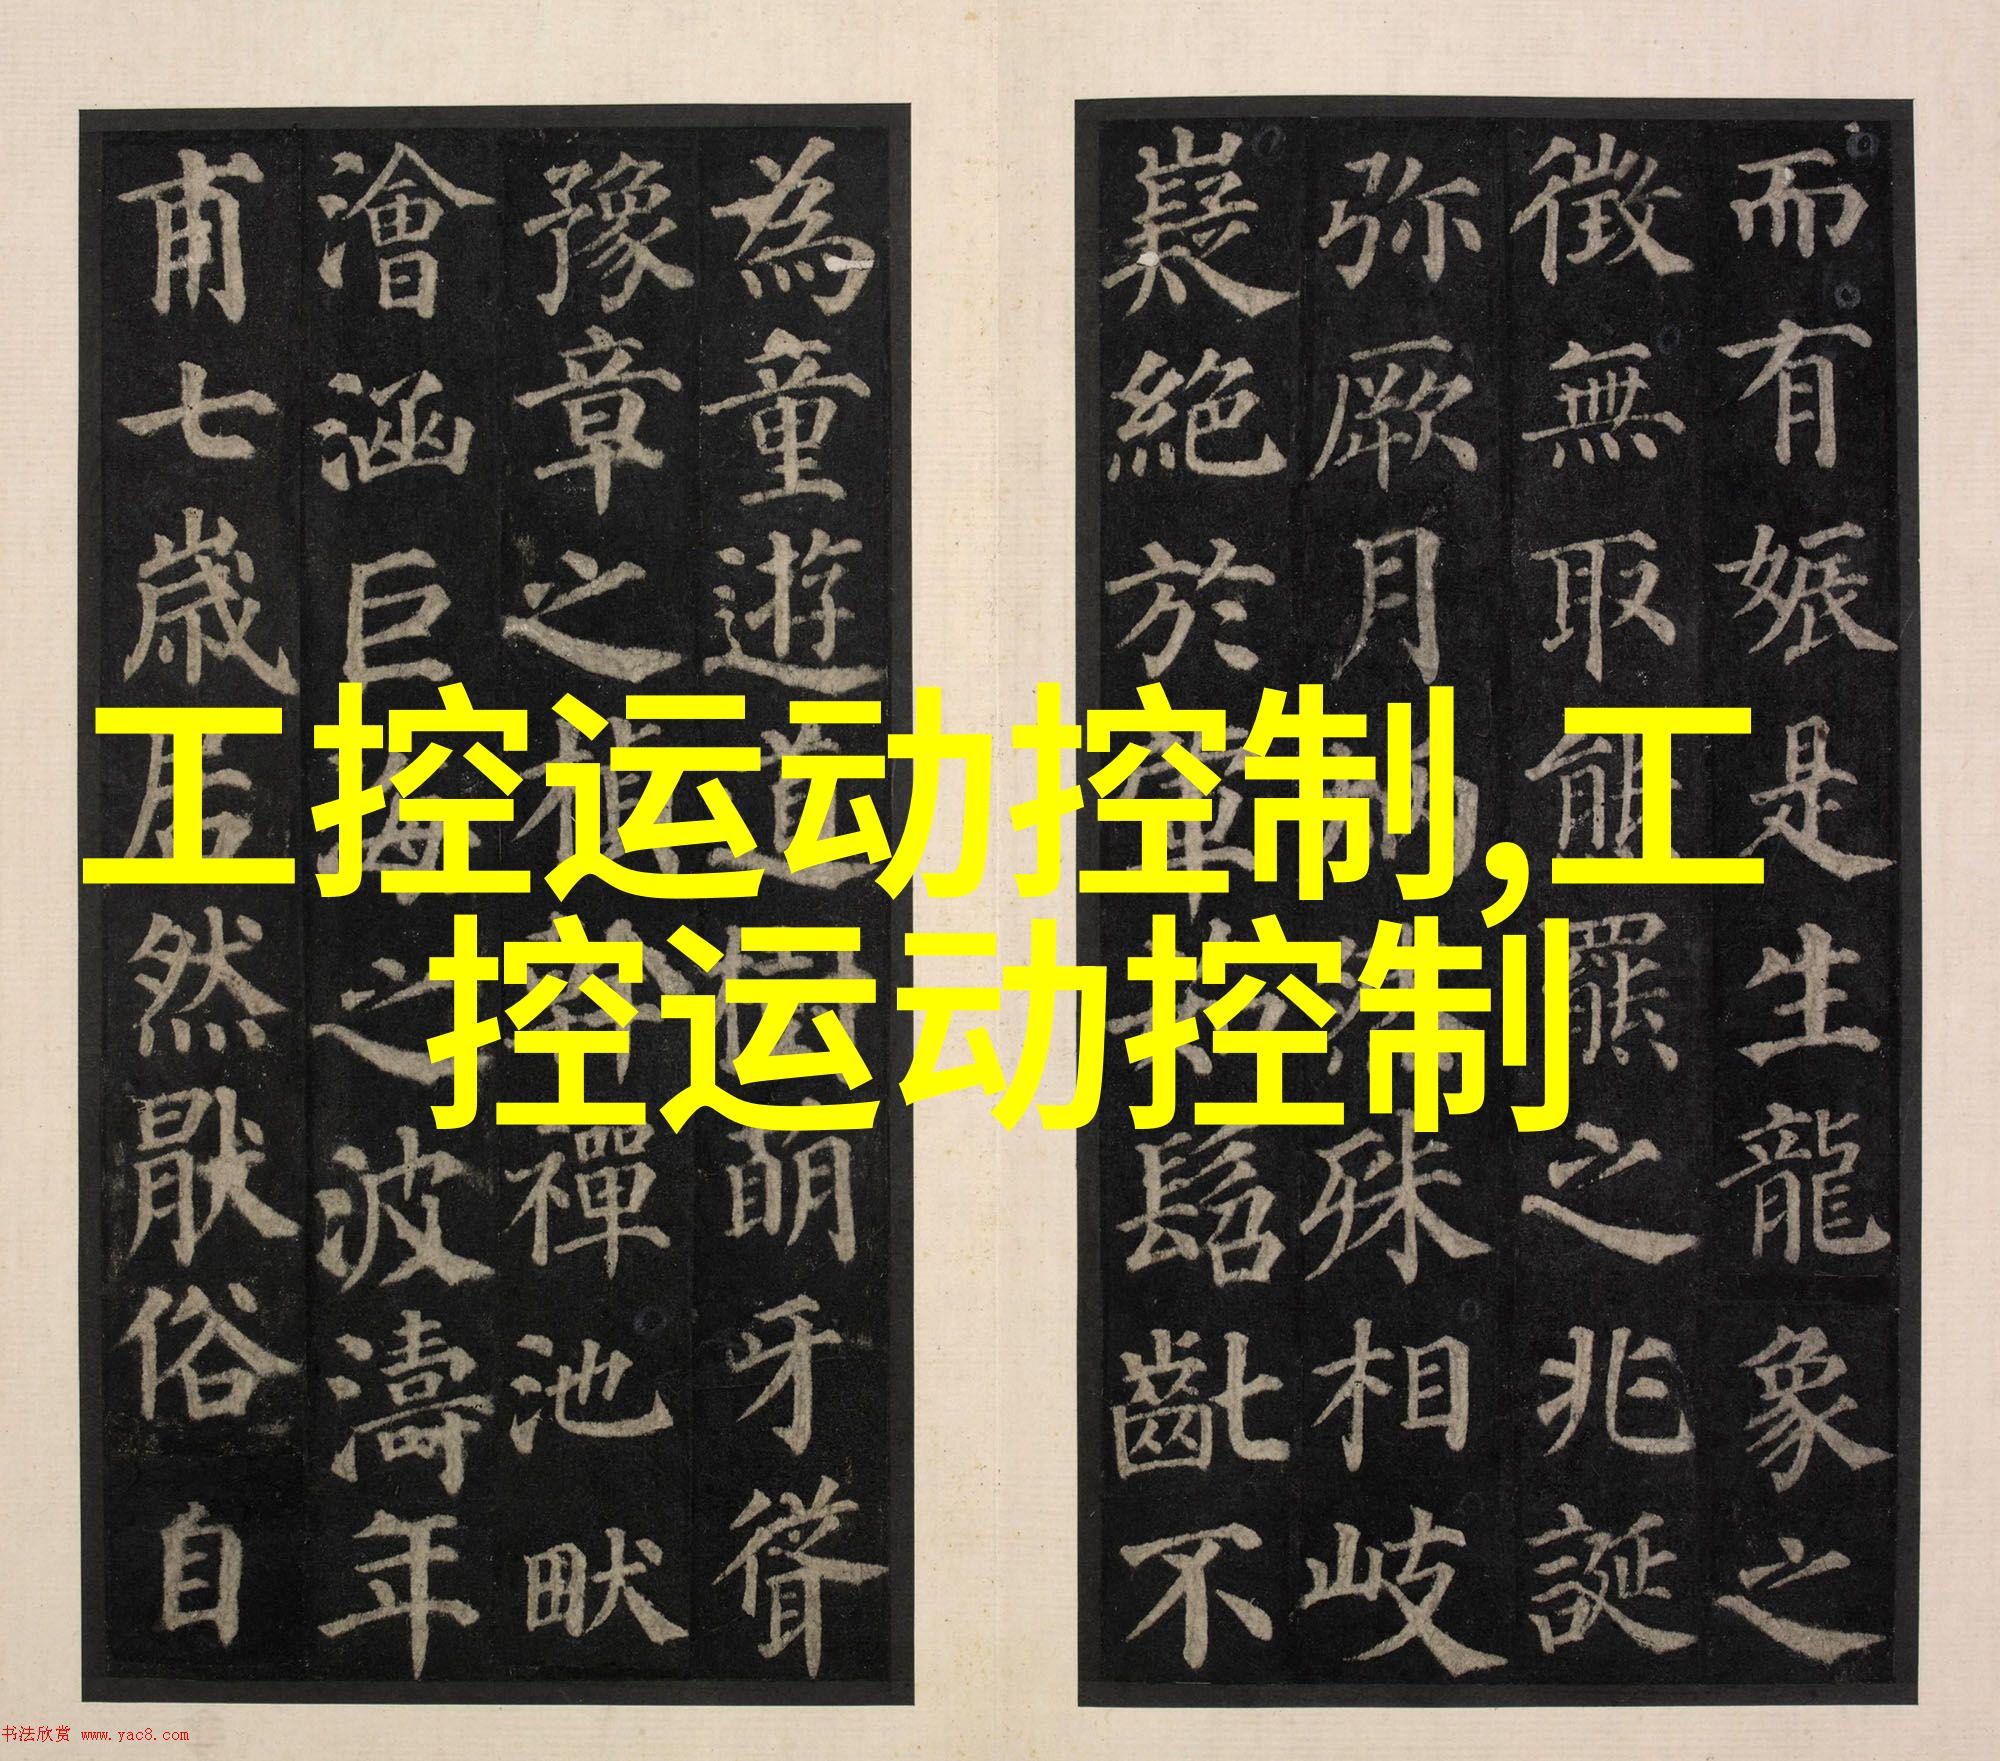 工控运动控制,工
控运动控制
而有娠是生龍象之
徵無取熊羆之兆誕
弥厥月炳殊相岐
嶷絕於髫齔不
為童遊道樹萌牙聳
豫章之楨幹禪池畎
澮涵巨海之波濤年
甫七歲居然猒俗自
书法欣赏 www.yac8.com